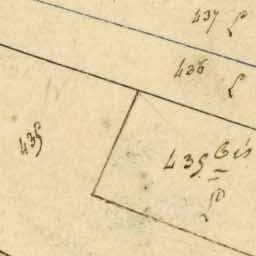 437
436
435
435 Bis